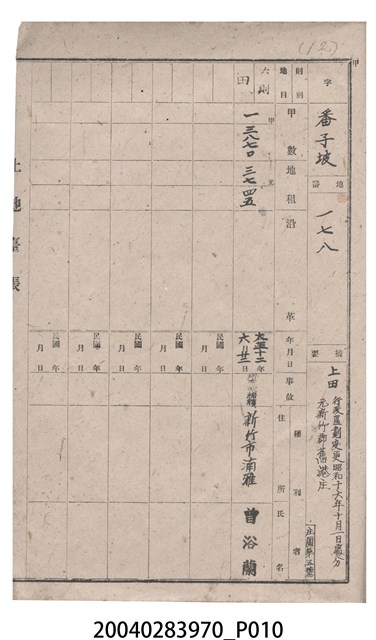 (12)
甲
字 番子坡
地番 一七八
摘要 上田 行政區劃變更昭和十六年十月一日處分
元新竹郡舊港庄
則別 地目 甲數 地租 沿革 年月日 事故 種利者 住所 氏名
六則 田 甲 一三八七〇 元 三七四五
大正十二年六月廿三日 相續 新竹市湳雅 曾浴蘭
民國 年 月 日
民國 年 月 日
民國 年 月 日
民國 年 月 日
民國 年 月 日
土地臺帳
20040283970_P010